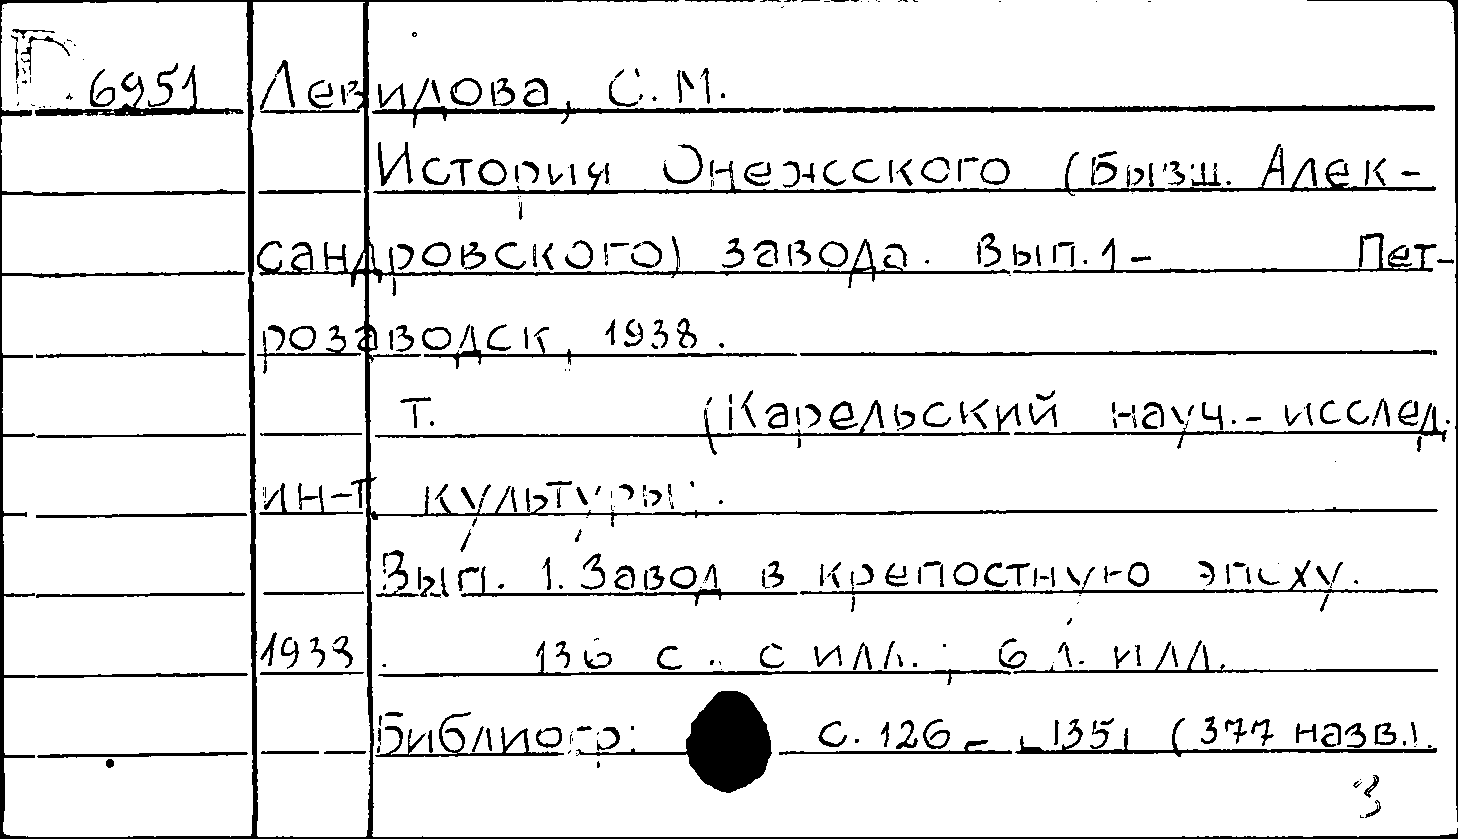 Г. 6951 Левидова, С. М.
История Онежсского (Бызш. Алек-
сандровского) завода. Вып. 1- Пет-
розаводск, 1938.
т. (Карельский науч.- исслед.
ин-т культуры).
Вып. 1. Завод в крепостную эпоху.
1938. 136 с. с илл.; 6 л. илл.
Библиогр: с. 126 - 135 (377 назв.).
3